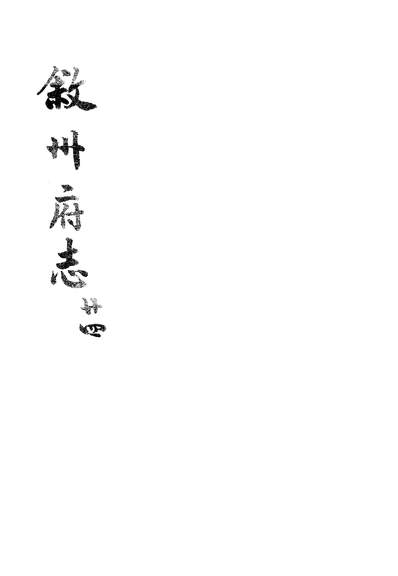 敘州府志
廿四